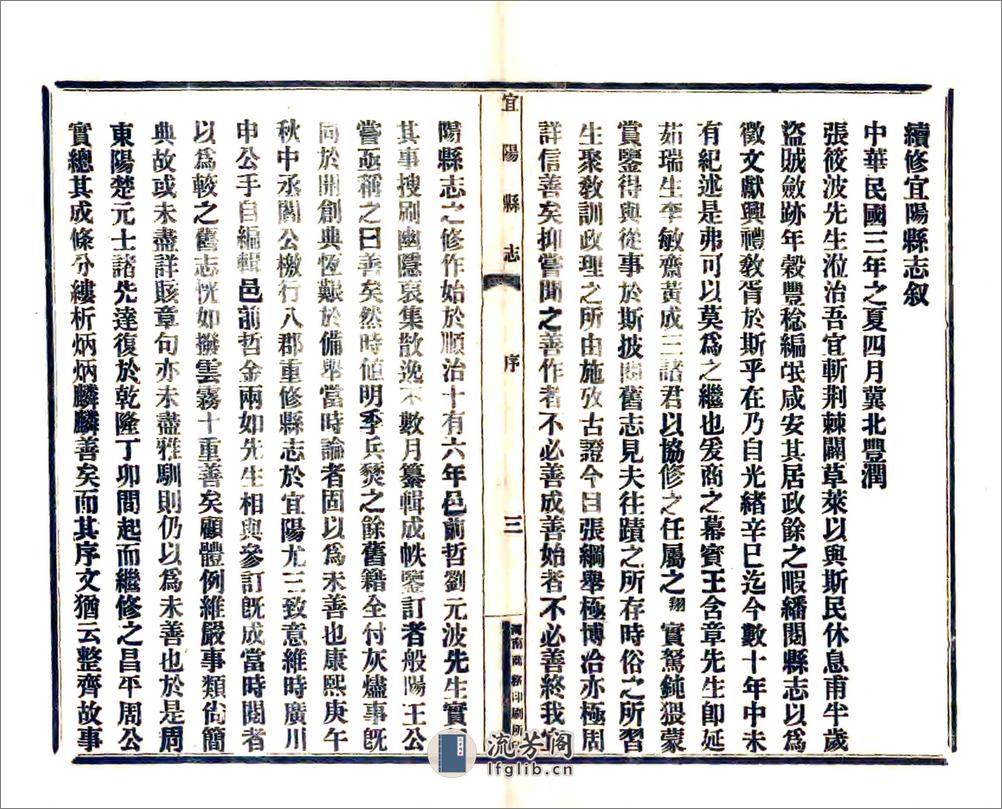 續修宜陽縣志叙
中華民國三年之夏四月冀北豐潤
張筱波先生涖治吾宜斬荆棘闢草萊以與斯民休息甫半歲
盜賊斂跡年穀豐稔編氓咸安其居政餘之暇繙閱縣志以為
徵文獻興禮敎胥於斯乎在乃自光緒辛巳迄今數十年中未
有紀述是弗可以莫為之繼也爰商之幕賓王含章先生卽延
茹瑞生李敏齋黃成三諸君以協修之任屬之翔實駑鈍猥蒙
賞鑒得與從事於斯披閱舊志見夫往蹟之所存時俗之所習
生聚敎訓政理之所由施攷古證今目張綱舉極博洽亦極周
詳信善矣抑嘗聞之善作者不必善成善始者不必善終我宜
宜陽縣志
序
三
河南商務印刷所
陽縣志之修作始於順治十有六年邑前哲劉元波先生實
其事搜刷幽隱裒集散逸不數月纂輯成帙鑒訂者般陽王公
嘗亟稱之曰善矣然時值明季兵燹之餘舊籍全付灰燼事旣
同於開創典恆艱於備舉當時論者固以為未善也康熙庚午
秋中丞閻公檄行八郡重修縣志於宜陽尤三致意維時廣川
申公手自編輯邑前哲金兩如先生相與參訂旣成當時閱者
以為較之舊志恍如撥雲霧十重善矣顧體例維嚴事類尙簡
典故或未盡詳賅章句亦未盡雅馴則仍以為未善也於是周
東陽楚元士諸先達復於乾隆丁卯間起而繼修之昌平周公
實總其成條分縷析炳炳麟麟善矣而其序文猶云整齊故事
流芳閣
lfglib.cn